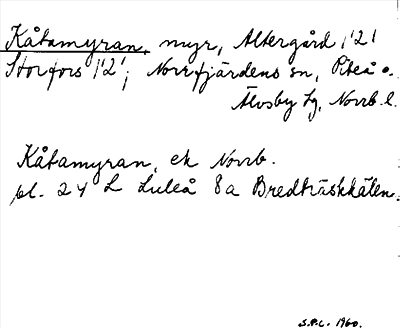 Kåtamyran, myr, Altergård 1'2'
Storfors 1'2'; Norrfjärdens sn, Piteå o.
Älvsby tg, Norrb. l.
Kåtamyran, ek Norrb.
bl. 24 L Luleå 8a Bredträskkälen.
S.P.L. 1960.